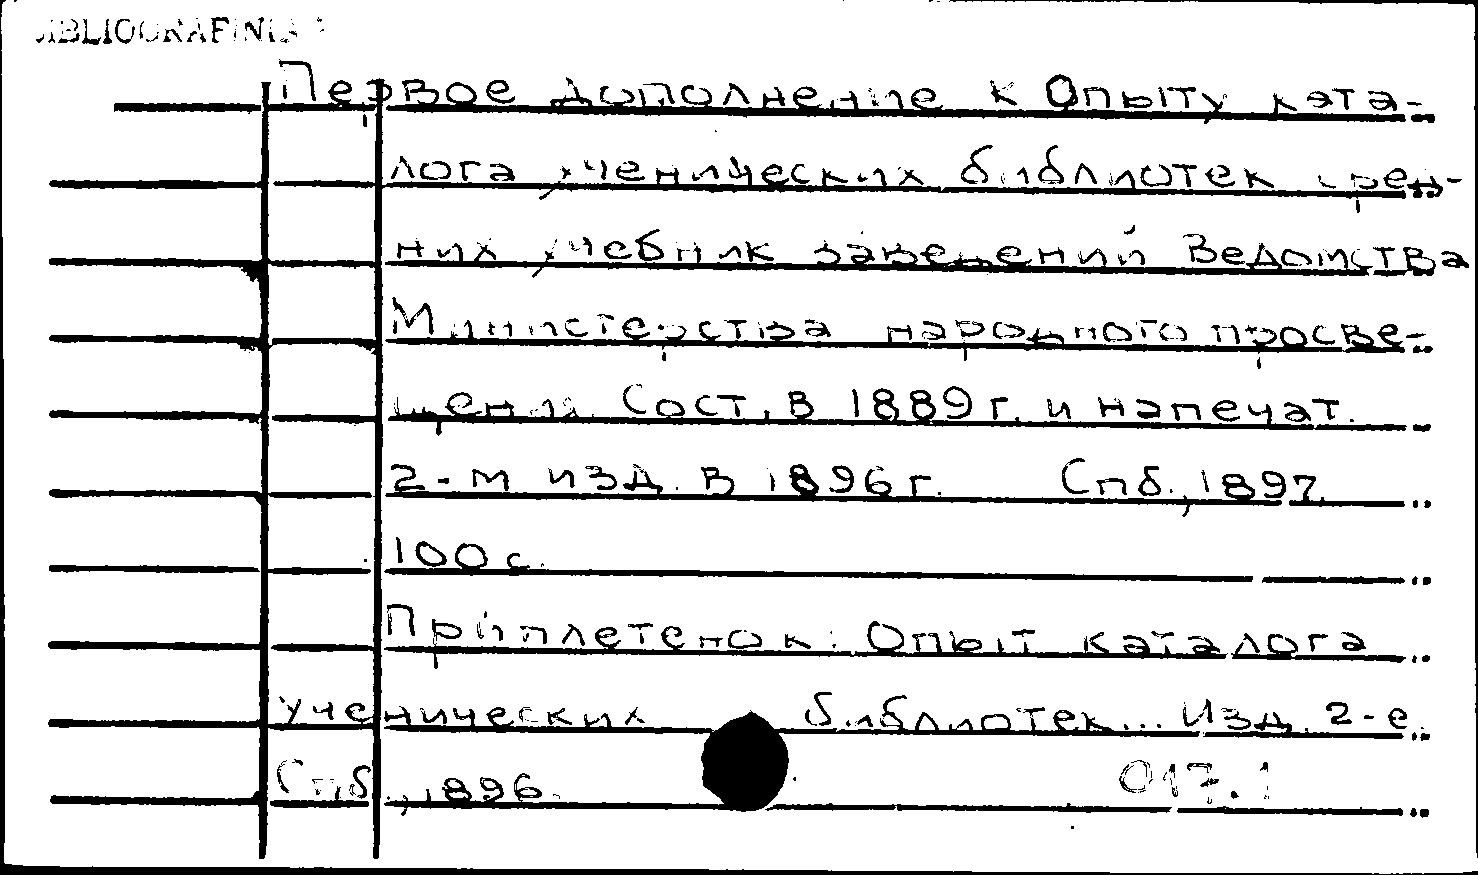 BIBLIOGRAFINIS
Первое дополнение к Опыту ката-
лога ученических библиотек сред-
них учебник заведений Ведомства
Министерства народного просве-
щения. Сост. в 1889 г. и напечат.
2-м изд. в 1896 г. Спб., 1897.
100 с.
Приплетенок: Опыт каталога
ученических библиотек... Изд. 2-е.
Спб., 1896.
017.1